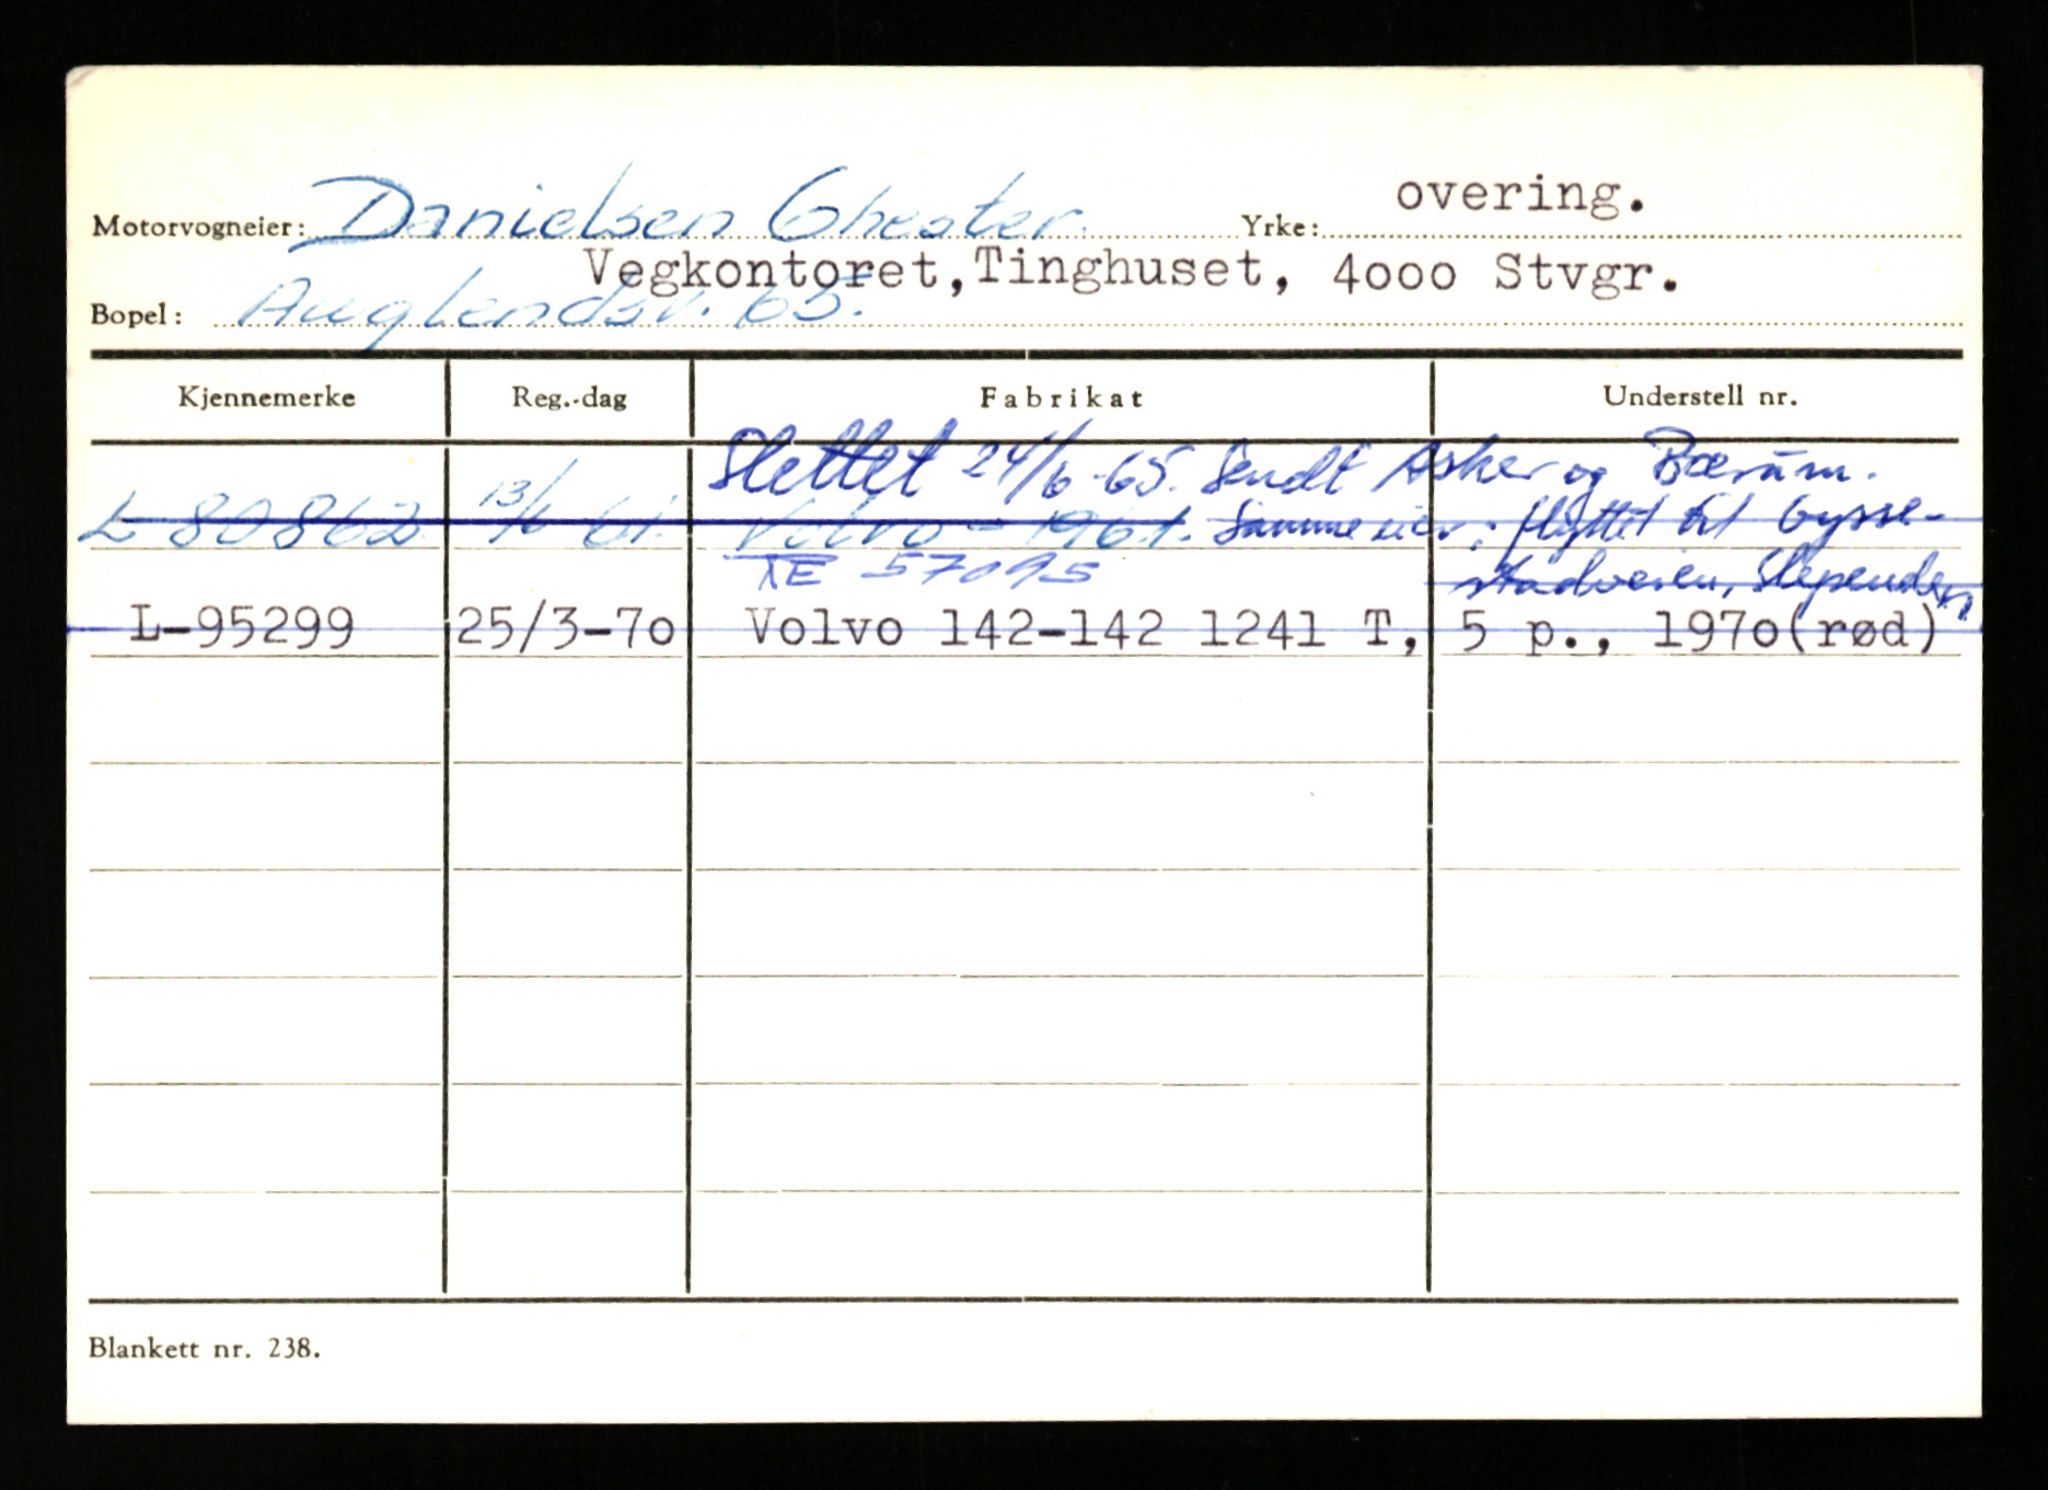 Motorvogneier: Danielsen Chester. Yrke: overing.
Vegkontoret,Tinghuset, 4ooo Stvgr.
Bopel: Auglendsv. 65.
Kjennemerke Reg.-dag Fabrikat Understell nr.
Slettet 24/6-65. Sendt Asker og Bærum.
L 80862 13/6 61. Volvo - 1961. Samme eier; flyttet til Gysse-
XE 57095 stadveien, Slependen
L-95299 25/3-7o Volvo 142-142 1241 T, 5 p., 197o(rød)
Blankett nr. 238.